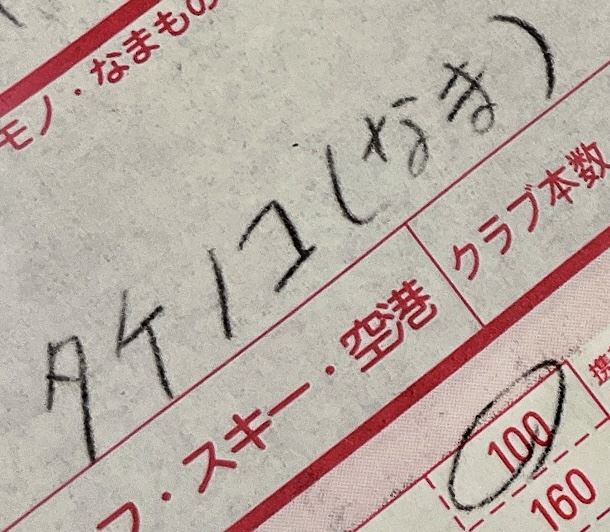 モノ・なまもの
タケノコ(なま)
フ・スキー・空港
クラブ本数
100
160